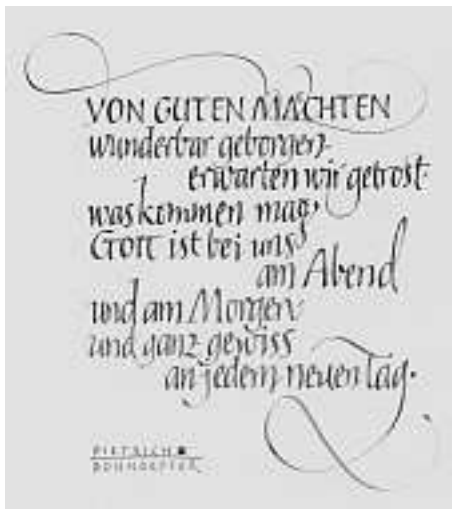 VON GUTEN MÄCHTEN
wunderbar geborgen
erwarten wir getrost
was kommen mag.
Gott ist bei uns
am Abend
und am Morgen
und ganz gewiss
an jedem neuen Tag.
DIETRICH
BONHOEFFER